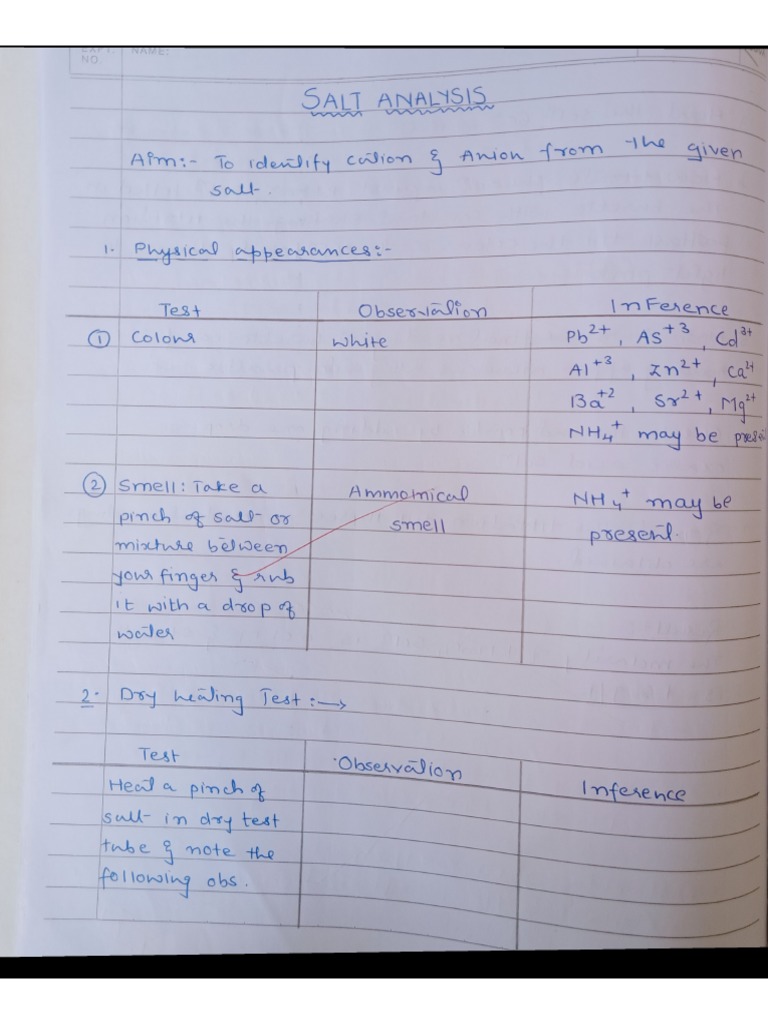 EXPT. NO.
NAME:
SALT ANALYSIS
Aim:- To identify cation & Anion from the given
salt.
1. Physical appearances:-
Test Observation Inference
① Colour White Pb²⁺, As⁺³, Cd³⁺
Al⁺³, Zn²⁺, Ca²⁺
Ba⁺², Sr²⁺, Mg²⁺
NH₄⁺ may be presen
② Smell: Take a Ammomical NH₄⁺ may be
pinch of salt or smell present.
mixture between
your finger & rub
it with a drop of
water
2. Dry heating Test :→
Test Observation Inference
Heat a pinch of
salt in dry test
tube & note the
following obs.